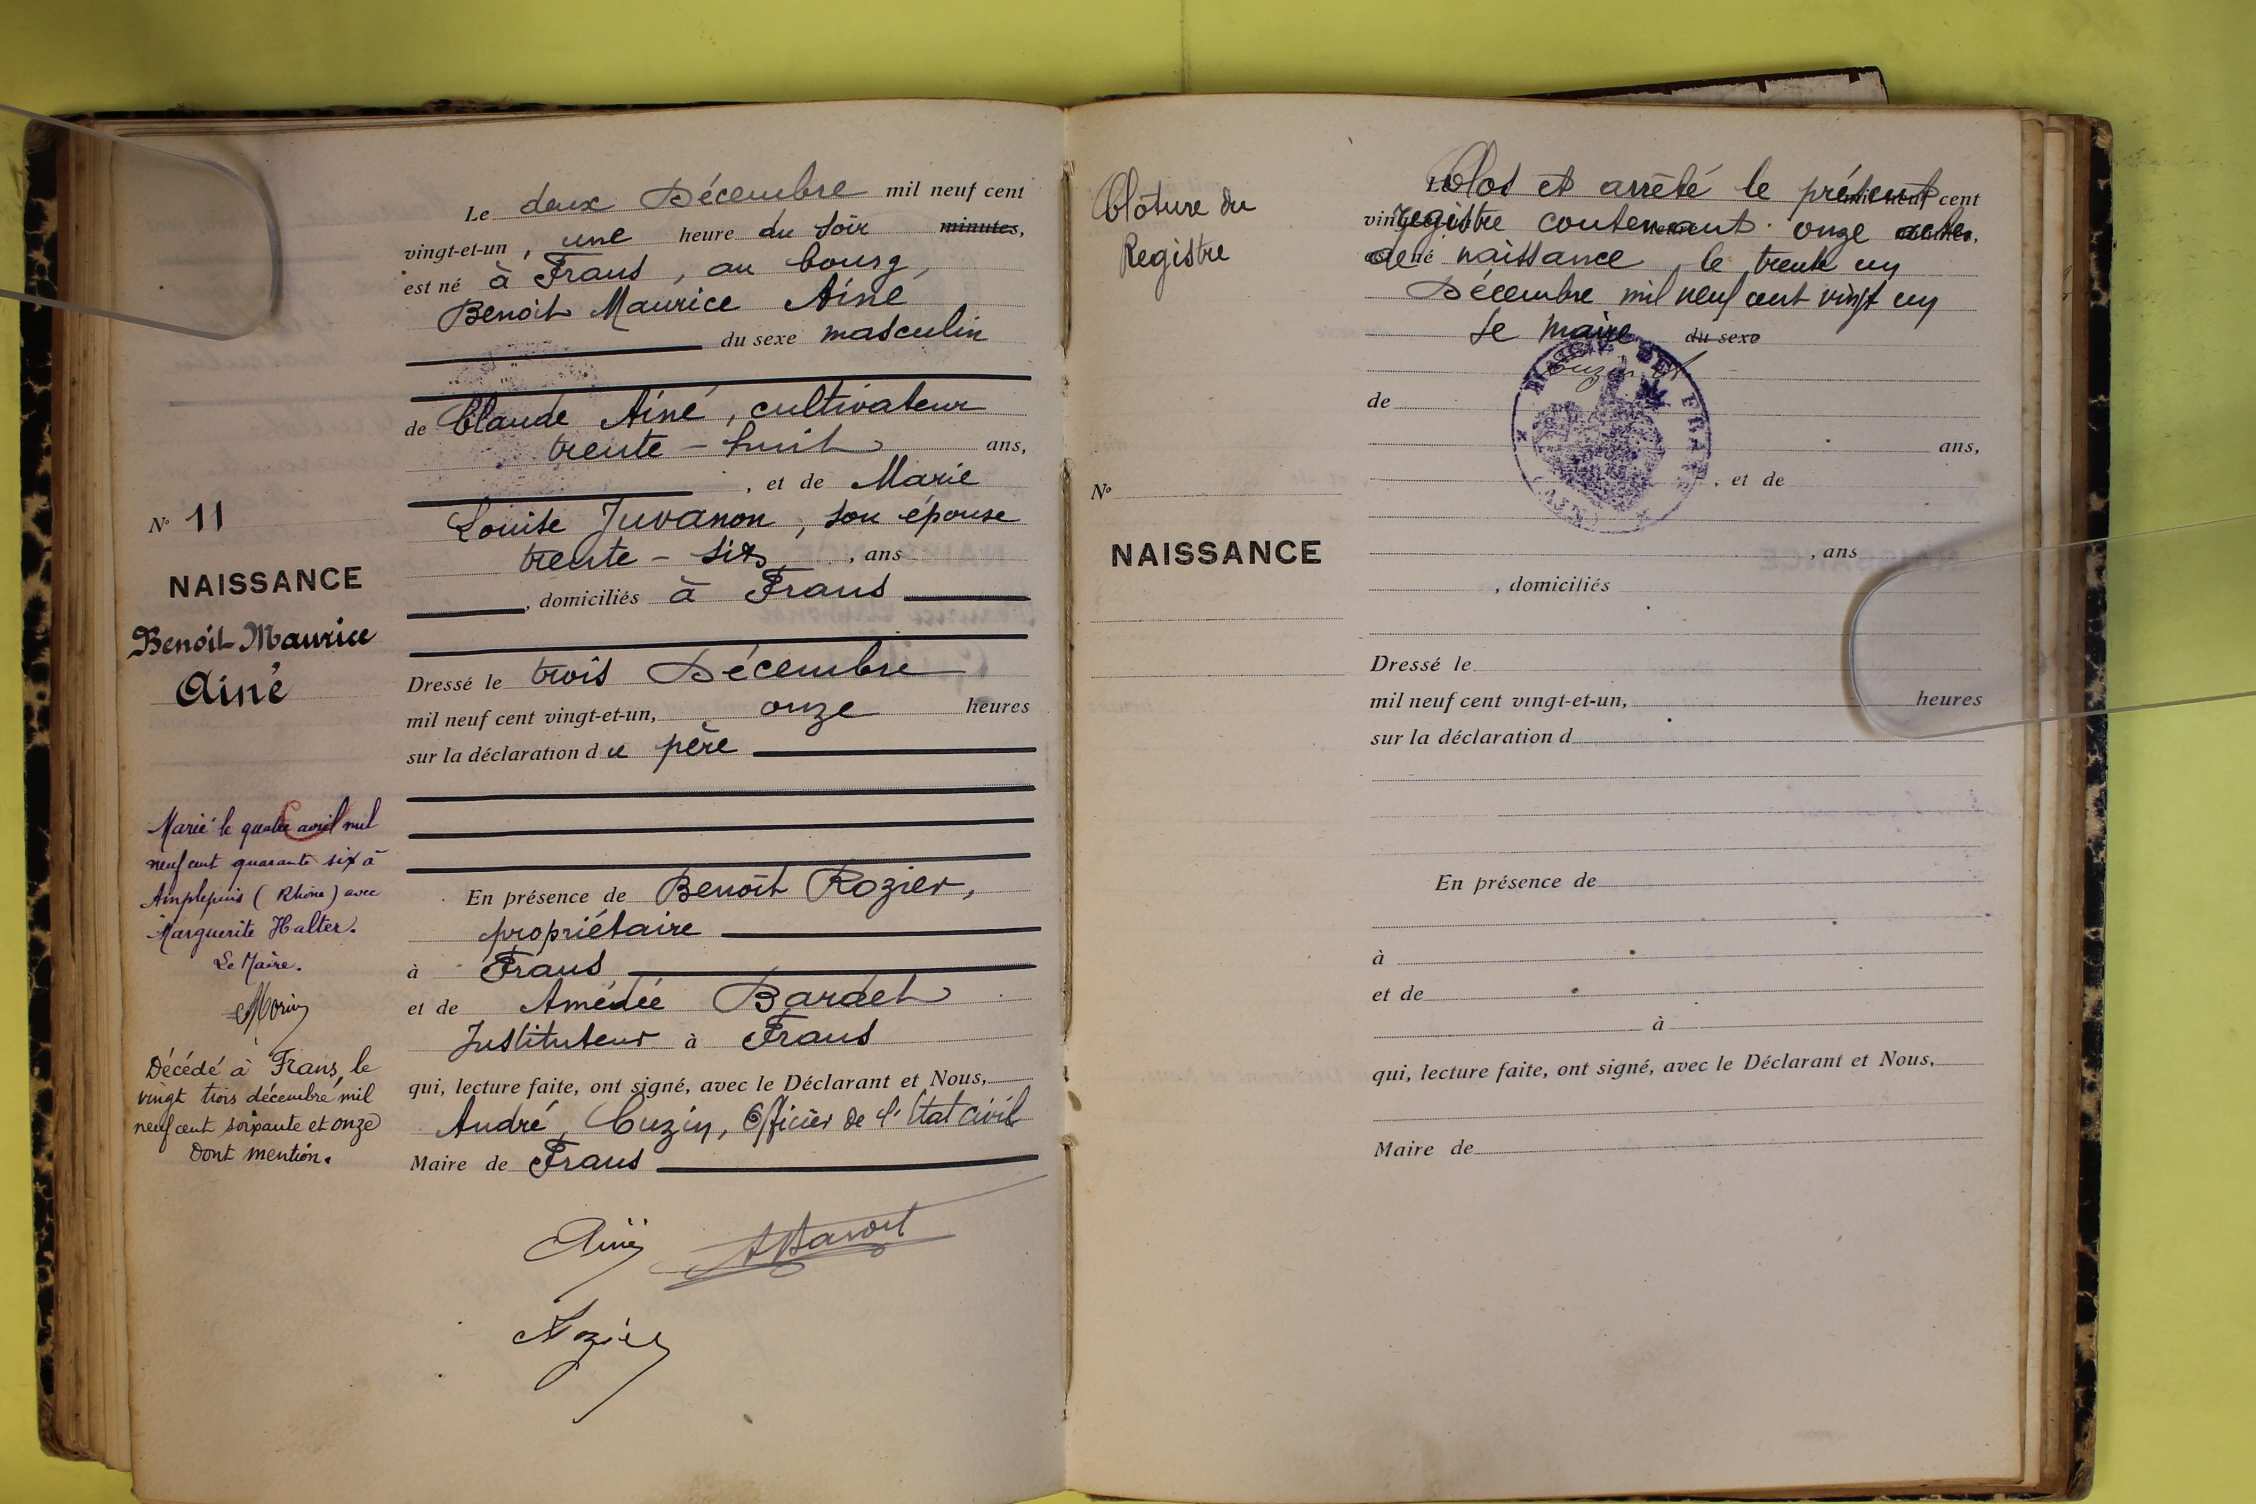 Le deux Décembre mil neuf cent
vingt-et-un, une heure du soir minutes,
est né à Frans, au bourg,
Benoit Maurice Ainé
du sexe masculin
de Claude Ainé, cultivateur
trente-huit ans,
, et de Marie
Louise Juvanon, son épouse
trente-six, ans
, domiciliés à Frans
Dressé le trois Décembre
mil neuf cent vingt-et-un, onze heures
sur la déclaration du père
En présence de Benoît Rozier,
propriétaire
à Frans
et de Amédée Bardet
Instituteur à Frans
qui, lecture faite, ont signé, avec le Déclarant et Nous,
André Cuzin, Officier de l'Etat civil
Maire de Frans
Ainé
Rozier
N° 11
NAISSANCE
Benoit Maurice
Ainé
Marié le quatre avril mil
neuf cent quarante six à
Amplepuis (Rhône) avec
Marguerite Halter.
Le Maire.
Morin
Décédé à Frans, le
vingt trois décembre mil
neuf cent soixante et onze
Dont mention.
Clôture du
Registre
N°
NAISSANCE
Clos et arrêté le présent cent
registre contenant onze actes
de naissance, le trente un
Décembre mil neuf cent vingt un
Le maire du sexe
Cuzin
MAIRIE DE FRANS
(AIN)
de
ans,
, et de
, ans
, domiciliés
Dressé le
mil neuf cent vingt-et-un, heures
sur la déclaration d
En présence de
à
et de
à
qui, lecture faite, ont signé, avec le Déclarant et Nous,
Maire de